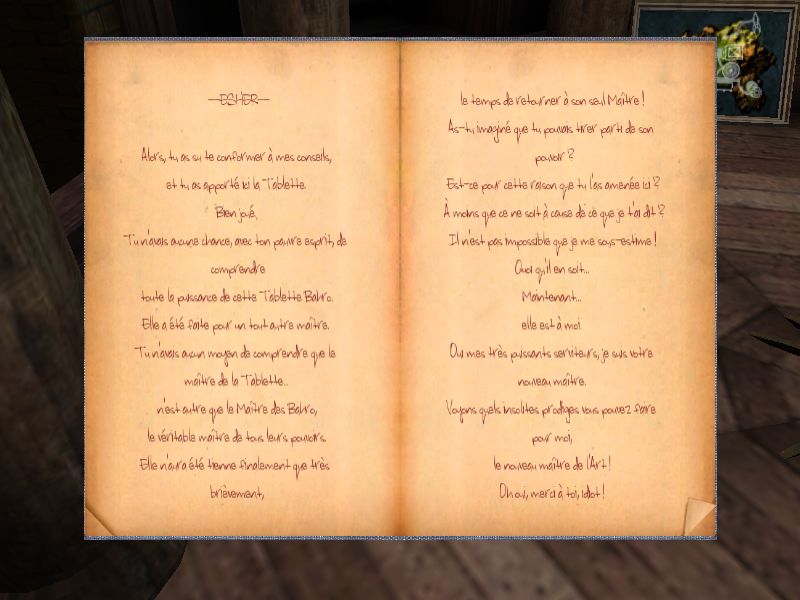 ESHER
Alors, tu as su te conformer à mes conseils,
et tu as apporté ici la Tablette.
Bien joué,
Tu n'avais aucune chance, avec ton pauvre esprit, de
comprendre
toute la puissance de cette Tablette Bahro.
Elle a été faite pour un tout autre maître.
Tu n'avais aucun moyen de comprendre que le
maître de la Tablette...
n'est autre que le Maître des Bahro,
le véritable maître de tous leurs pouvoirs.
Elle n'aura été tienne finalement que très
brièvement,
le temps de retourner à son seul Maître !
As-tu imaginé que tu pouvais tirer parti de son
pouvoir ?
Est-ce pour cette raison que tu l'as amenée ici ?
À moins que ce ne soit à cause de ce que je t'ai dit ?
Il n'est pas impossible que je me sous-estime !
Quoi qu'il en soit...
Maintenant...
elle est à moi.
Oui mes très puissants serviteurs, je suis votre
nouveau maître.
Voyons quels insolites prodiges vous pouvez faire
pour moi,
le nouveau maître de l'Art !
Oh oui, merci à toi, idiot !